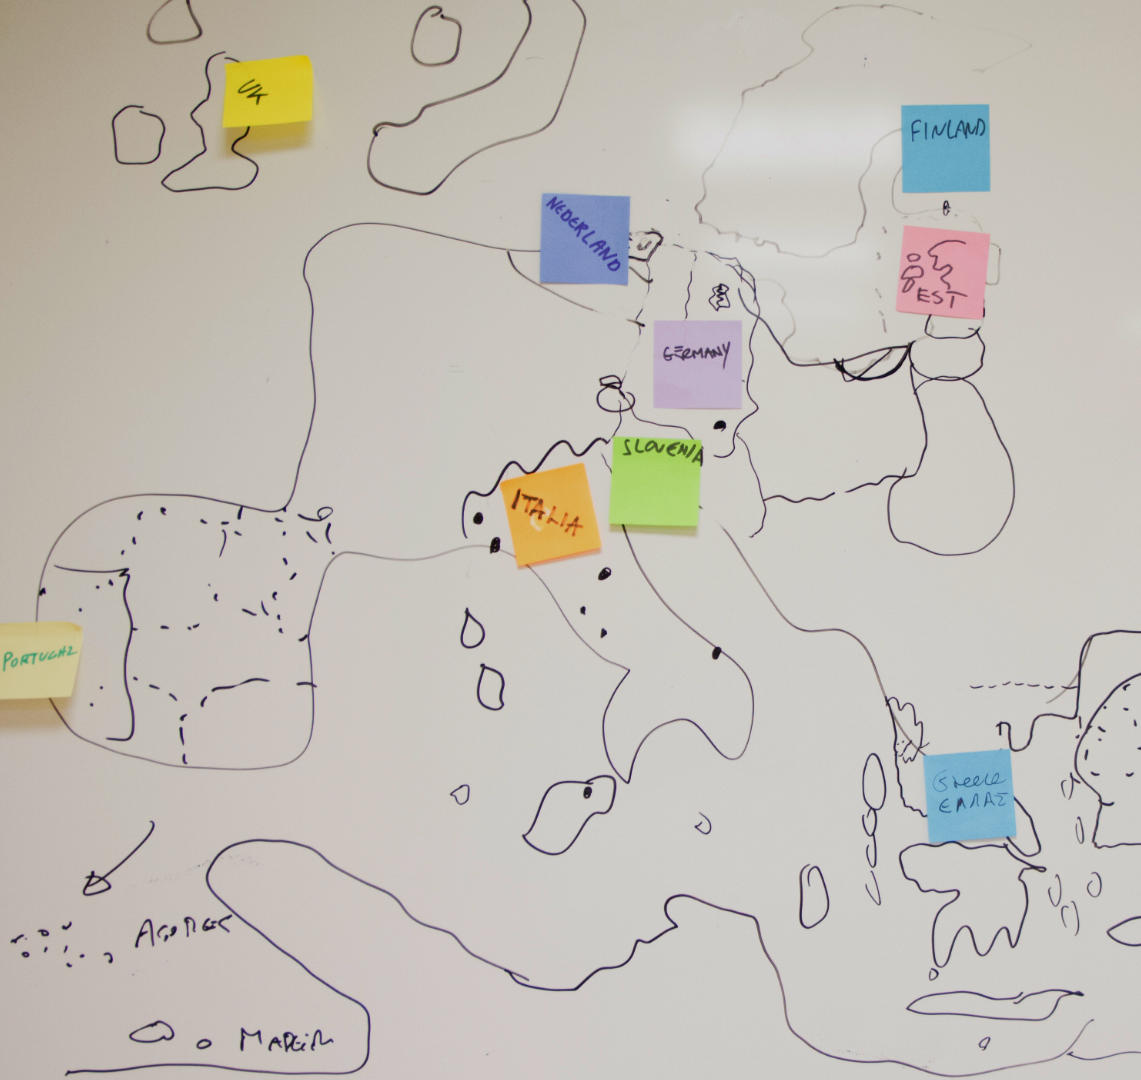 UK
FINLAND
NEDERLAND
EST
GERMANY
SLOVENIA
ITALIA
PORTUGAL
Greece
ΕΛΛΑΣ
AÇORES
MADEIRA